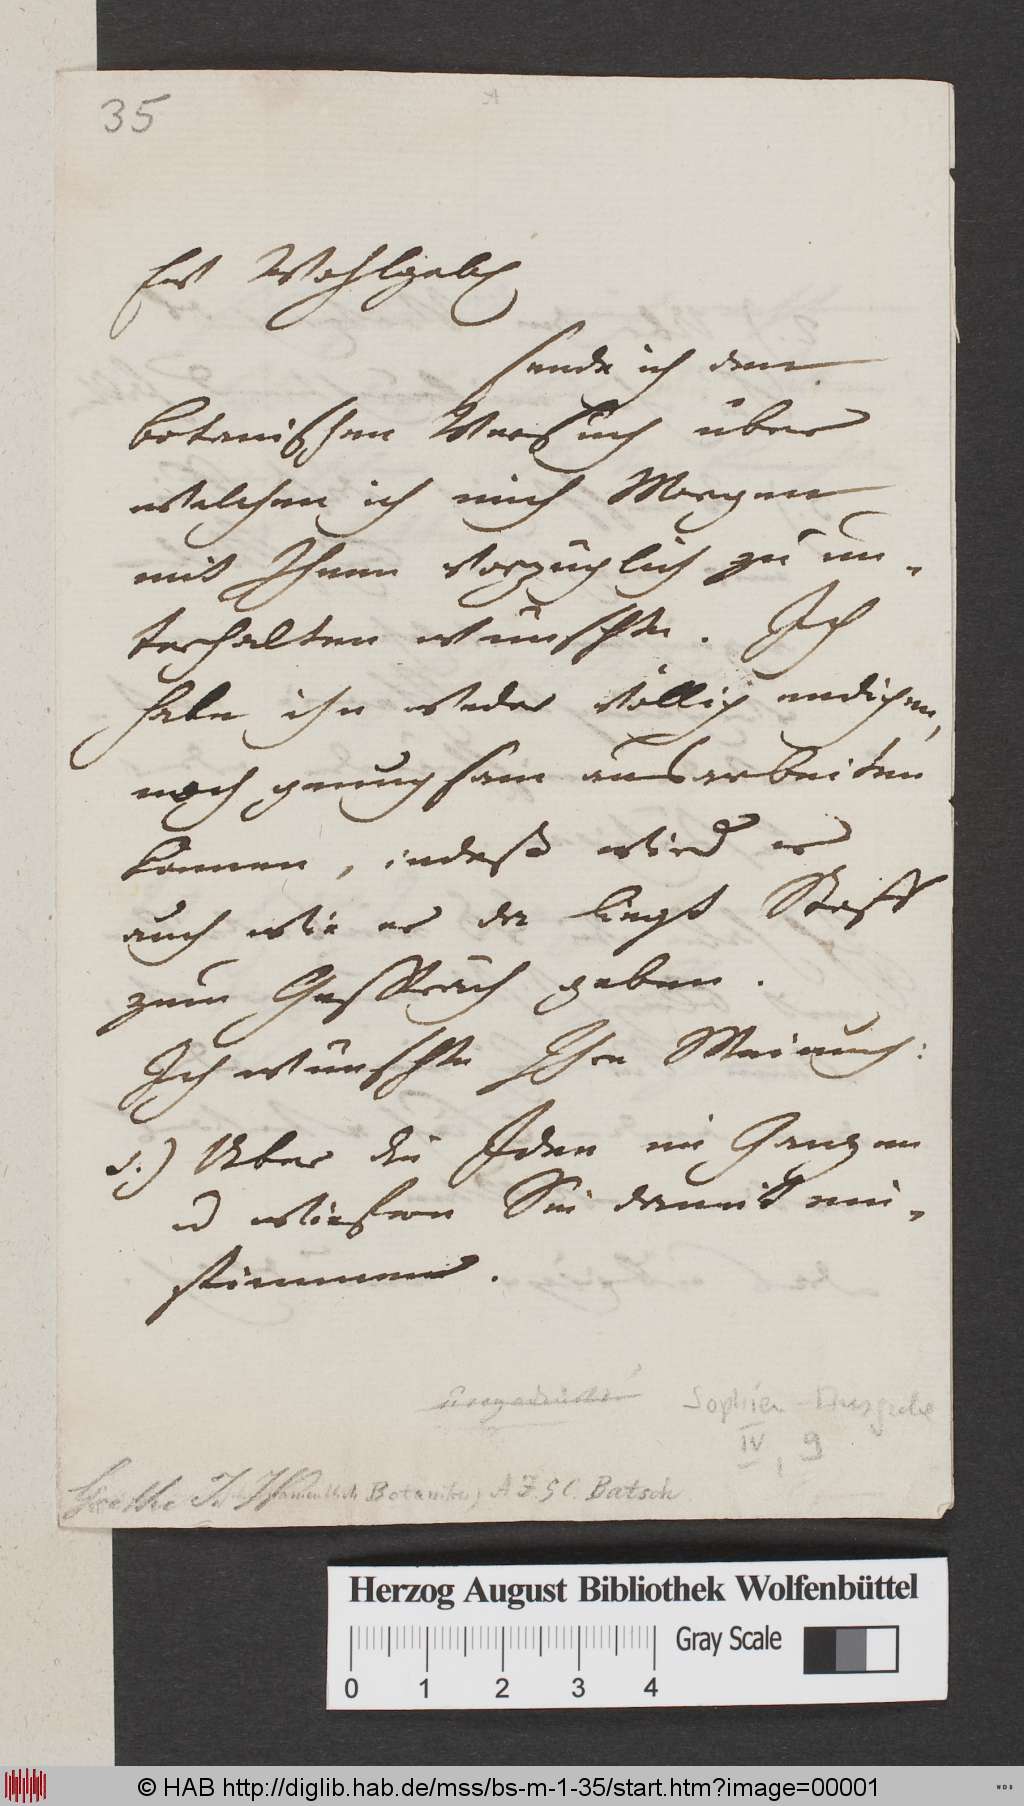 35
Ew Wohlgeb
sende ich den
botanischen Versuch über
welchen ich mich Morgen
mit Ihnen vorzüglich zu un-
terhalten wünschte. Ich
habe ihn weder völlig endigen,
noch genugsam ausarbeiten
können, indeß wird er
auch wie er da liegt Stoff
zum Gespräch geben.
Ich wünschte Ihre Meinung:
1.) Über die Idee im Ganzen
u wiefern Sie damit ein-
stimmen.
Sophien-Ausgabe
IV, 9
Goethe J. W. Botaniker A.J.G.C. Batsch
Herzog August Bibliothek Wolfenbüttel
Gray Scale
0 1 2 3 4
© HAB http://diglib.hab.de/mss/bs-m-1-35/start.htm?image=00001